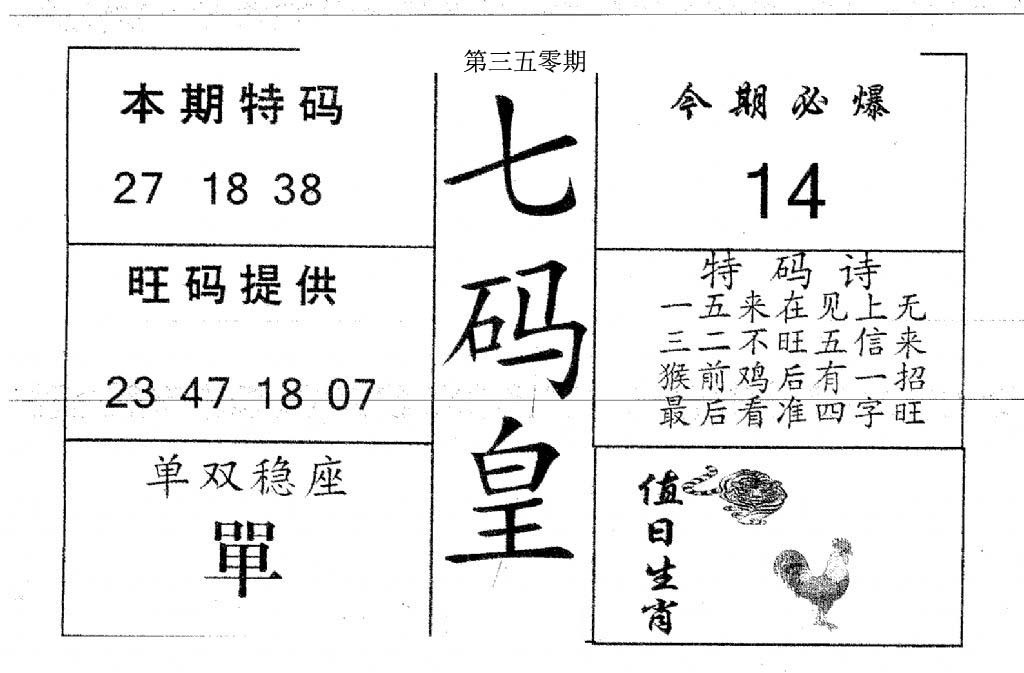 第三五零期
本期特码
27 18 38
旺码提供
23 47 18 07
单双稳座
單
七码皇
今期必爆
14
特码诗
一五来在见上无
三二不旺五信来
猴前鸡后有一招
最后看准四字旺
值日生肖